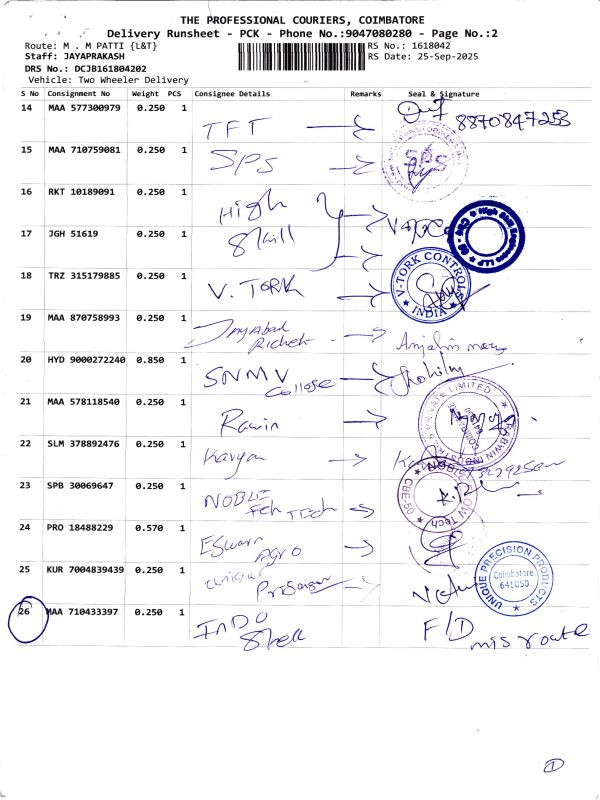 THE PROFESSIONAL COURIERS, COIMBATORE
Delivery Runsheet - PCK - Phone No.:9047080280 - Page No.:2
Route: M . M PATTI {L&T}
RS No.: 1618042
Staff: JAYAPRAKASH
RS Date: 25-Sep-2025
DRS No.: DCJB161804202
Vehicle: Two Wheeler Delivery
S No Consignment No Weight PCS Consignee Details Remarks Seal & Signature
14 MAA 577300979 0.250 1
TFT 8870847253
15 MAA 710759081 0.250 1
SPS SPS
16 RKT 10189091 0.250 1
High
17 JGH 51619 0.250 1
Skill
18 TRZ 315179885 0.250 1
V. TORK V-TORK CONTROLS INDIA
19 MAA 870758993 0.250 1
20 HYD 9000272240 0.850 1
SNMV
College
21 MAA 578118540 0.250 1
PRIVATE LIMITED
22 SLM 378892476 0.250 1
23 SPB 30069647 0.250 1
NOBLE
Tech CBE-09
24 PRO 18488229 0.570 1
Eswari
Agro
25 KUR 7004839439 0.250 1
unique UNIQUE PRECISION PRODUCTS
Coimbatore
641050
26 MAA 710433397 0.250 1
INDO F/D
Shell misroute
1